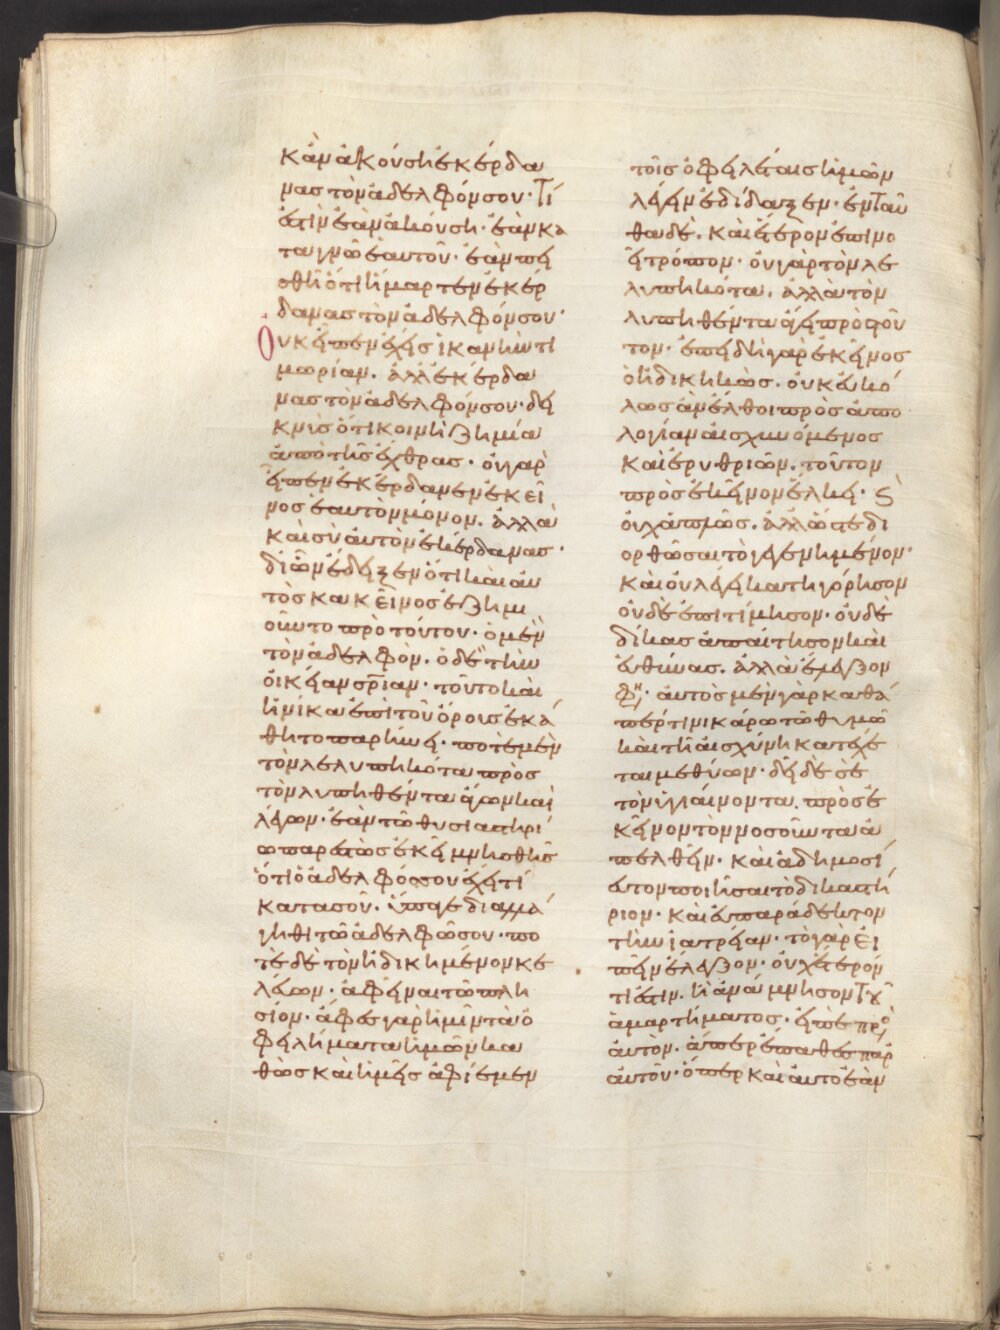 κἂν ἀκούσῃ ἐκέρδα
νας τὸν ἀδελφόν σου· Τί
ἐστὶν ἐὰν ἀκούσῃ· ἐὰν κα
ταγνῷ ἑαυτοῦ· ἐὰν πει
σθῇ ὅτι ἥμαρτεν ἐκέρ
δανας τὸν ἀδελφόν σου·
Οὐκ εἶπεν ἔχεις ἱκανὴν τι
μωρίαν. ἀλλ' ἐκέρδα
νας τὸν ἀδελφόν σου· δει
κνὺς ὅτι κοινὴ ζημία
ἀπὸ τῆς ἔχθρας· οὐ γὰρ
εἶπεν ἐκέρδανεν ἐκεῖ
νος ἑαυτὸν μόνον. ἀλλὰ
καὶ σὺ αὐτὸν ἐκέρδανας·
δι' ὧν ἔδειξεν ὅτι καὶ αὐ
τὸς κακεῖνος ἐζημι
οῦντο πρὸ τούτου· ὁ μὲν
τὸν ἀδελφὸν. ὁ δὲ τὴν
οἰκείαν σρίαν· τοῦτο καὶ
ἡνίκα ἐπὶ τοῦ ὄρους ἐκά
θητο παρῄνει· ποτὲ μὲν
τὸν λελυπηκότα πρὸς
τὸν λυπηθέντα ἄγων καὶ
λέγων· ἐὰν τῷ θυσιαστηρί
ῳ παρεστὼς ἐκεῖ μνησθῇς
ὅτι ὁ ἀδελφός σου ἔχει τί
κατὰ σοῦ. ὕπαγε διαλλά
γηθι τῷ ἀδελφῷ σου· πο
τὲ δὲ τὸν ἠδικημένον κε
λεύων· ἀφεῖναι τῷ πλη
σίον· ἄφες γὰρ ἡμῖν τὰ ὀ
φειλήματα ἡμῶν κα
θὼς καὶ ἡμεῖς ἀφίεμεν
τοῖς ὀφειλέταις ἡμῶν
λέγειν ἐδίδαξεν· ἐνταῦ
θα δὲ. καὶ ἕτερον ἐπινο
εῖ τρόπον· οὐ γὰρ τὸν λε
λυπηκότα. ἀλλὰ τὸν
λυπηθέντα ἄγει πρὸς τοῦ
τον· ἐπειδὴ γὰρ ἐκεῖνος
ὁ ἠδικηκὼς. οὐκ εὐκό
λως ἂν ἔλθοι πρὸς ἀπο
λογίαν αἰσχυνόμενος
καὶ ἐρυθριῶν. τοῦτον
πρὸς ἐκεῖνον ἕλκει· καὶ
οὐχ ἁπλῶς. ἀλλ' ὥστε δι
ορθῶσαι τὸ γεγενημένον·
καὶ οὐ λέγει κατηγόρησον
οὐδὲ ἐπιτίμησον· οὐδὲ
δίκας ἀπαίτησον καὶ
εὐθύνας. ἀλλὰ ἔλεγξον
φη· αὐτὸς μὲν γὰρ καθά
περ τινι κάρῳ τῷ θυμῷ
καὶ τῇ αἰσχύνῃ κατέχε
ται μεθύων· δεῖ δὲ σὲ
τὸν ὑγιαίνοντα. πρὸς ἐ
κεῖνον τὸν νοσοῦντα ἀ
πελθεῖν· καὶ ἀδημοσί
ευτον ποιῆσαι τὸ δικαστή
ριον· καὶ εὐπαράδεκτον
τὴν ἰατρείαν· τὸ γὰρ εἰ
πεῖν ἔλεγξον· οὐχ ἕτερόν
τί ἐστιν. ἢ ἀνάμνησον τοῦ
ἁμαρτήματος· εἰπὲ πρὸ
αὐτὸν. ἅπερ ἔπαθες παρ'
αὐτοῦ· ὅπερ καὶ αὐτὸ ἐὰν